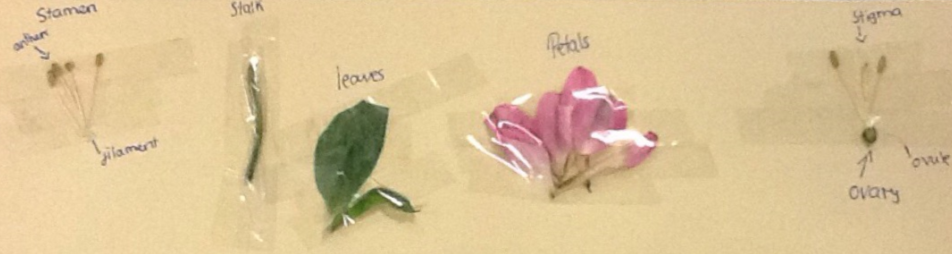 Stamen
anther
filament
Stalk
leaves
Petals
Stigma
ovary
ovule